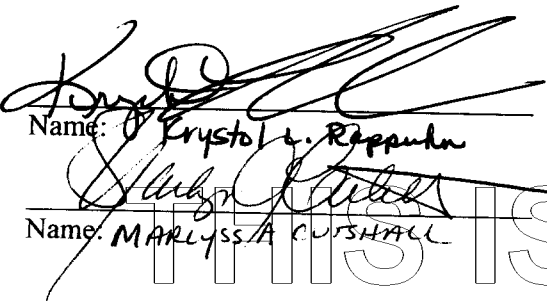 Name: Krystol L. Rappuhn
Name: MARLYSS A CUTSHALL
THIS IS